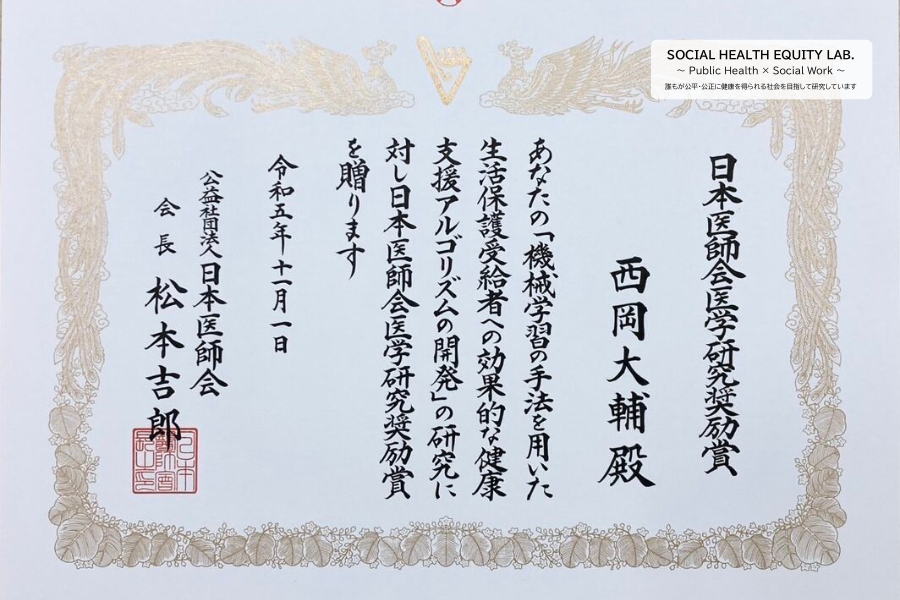 SOCIAL HEALTH EQUITY LAB.
～ Public Health × Social Work ～
誰もが公平・公正に健康を得られる社会を目指して研究しています
日本医師会医学研究奨励賞
西岡大輔殿
あなたの「機械学習の手法を用いた
生活保護受給者への効果的な健康
支援アルゴリズムの開発」の研究に
対し日本医師会医学研究奨励賞
を贈ります
令和五年十一月一日
公益社団法人日本医師会
会長 松本吉郎